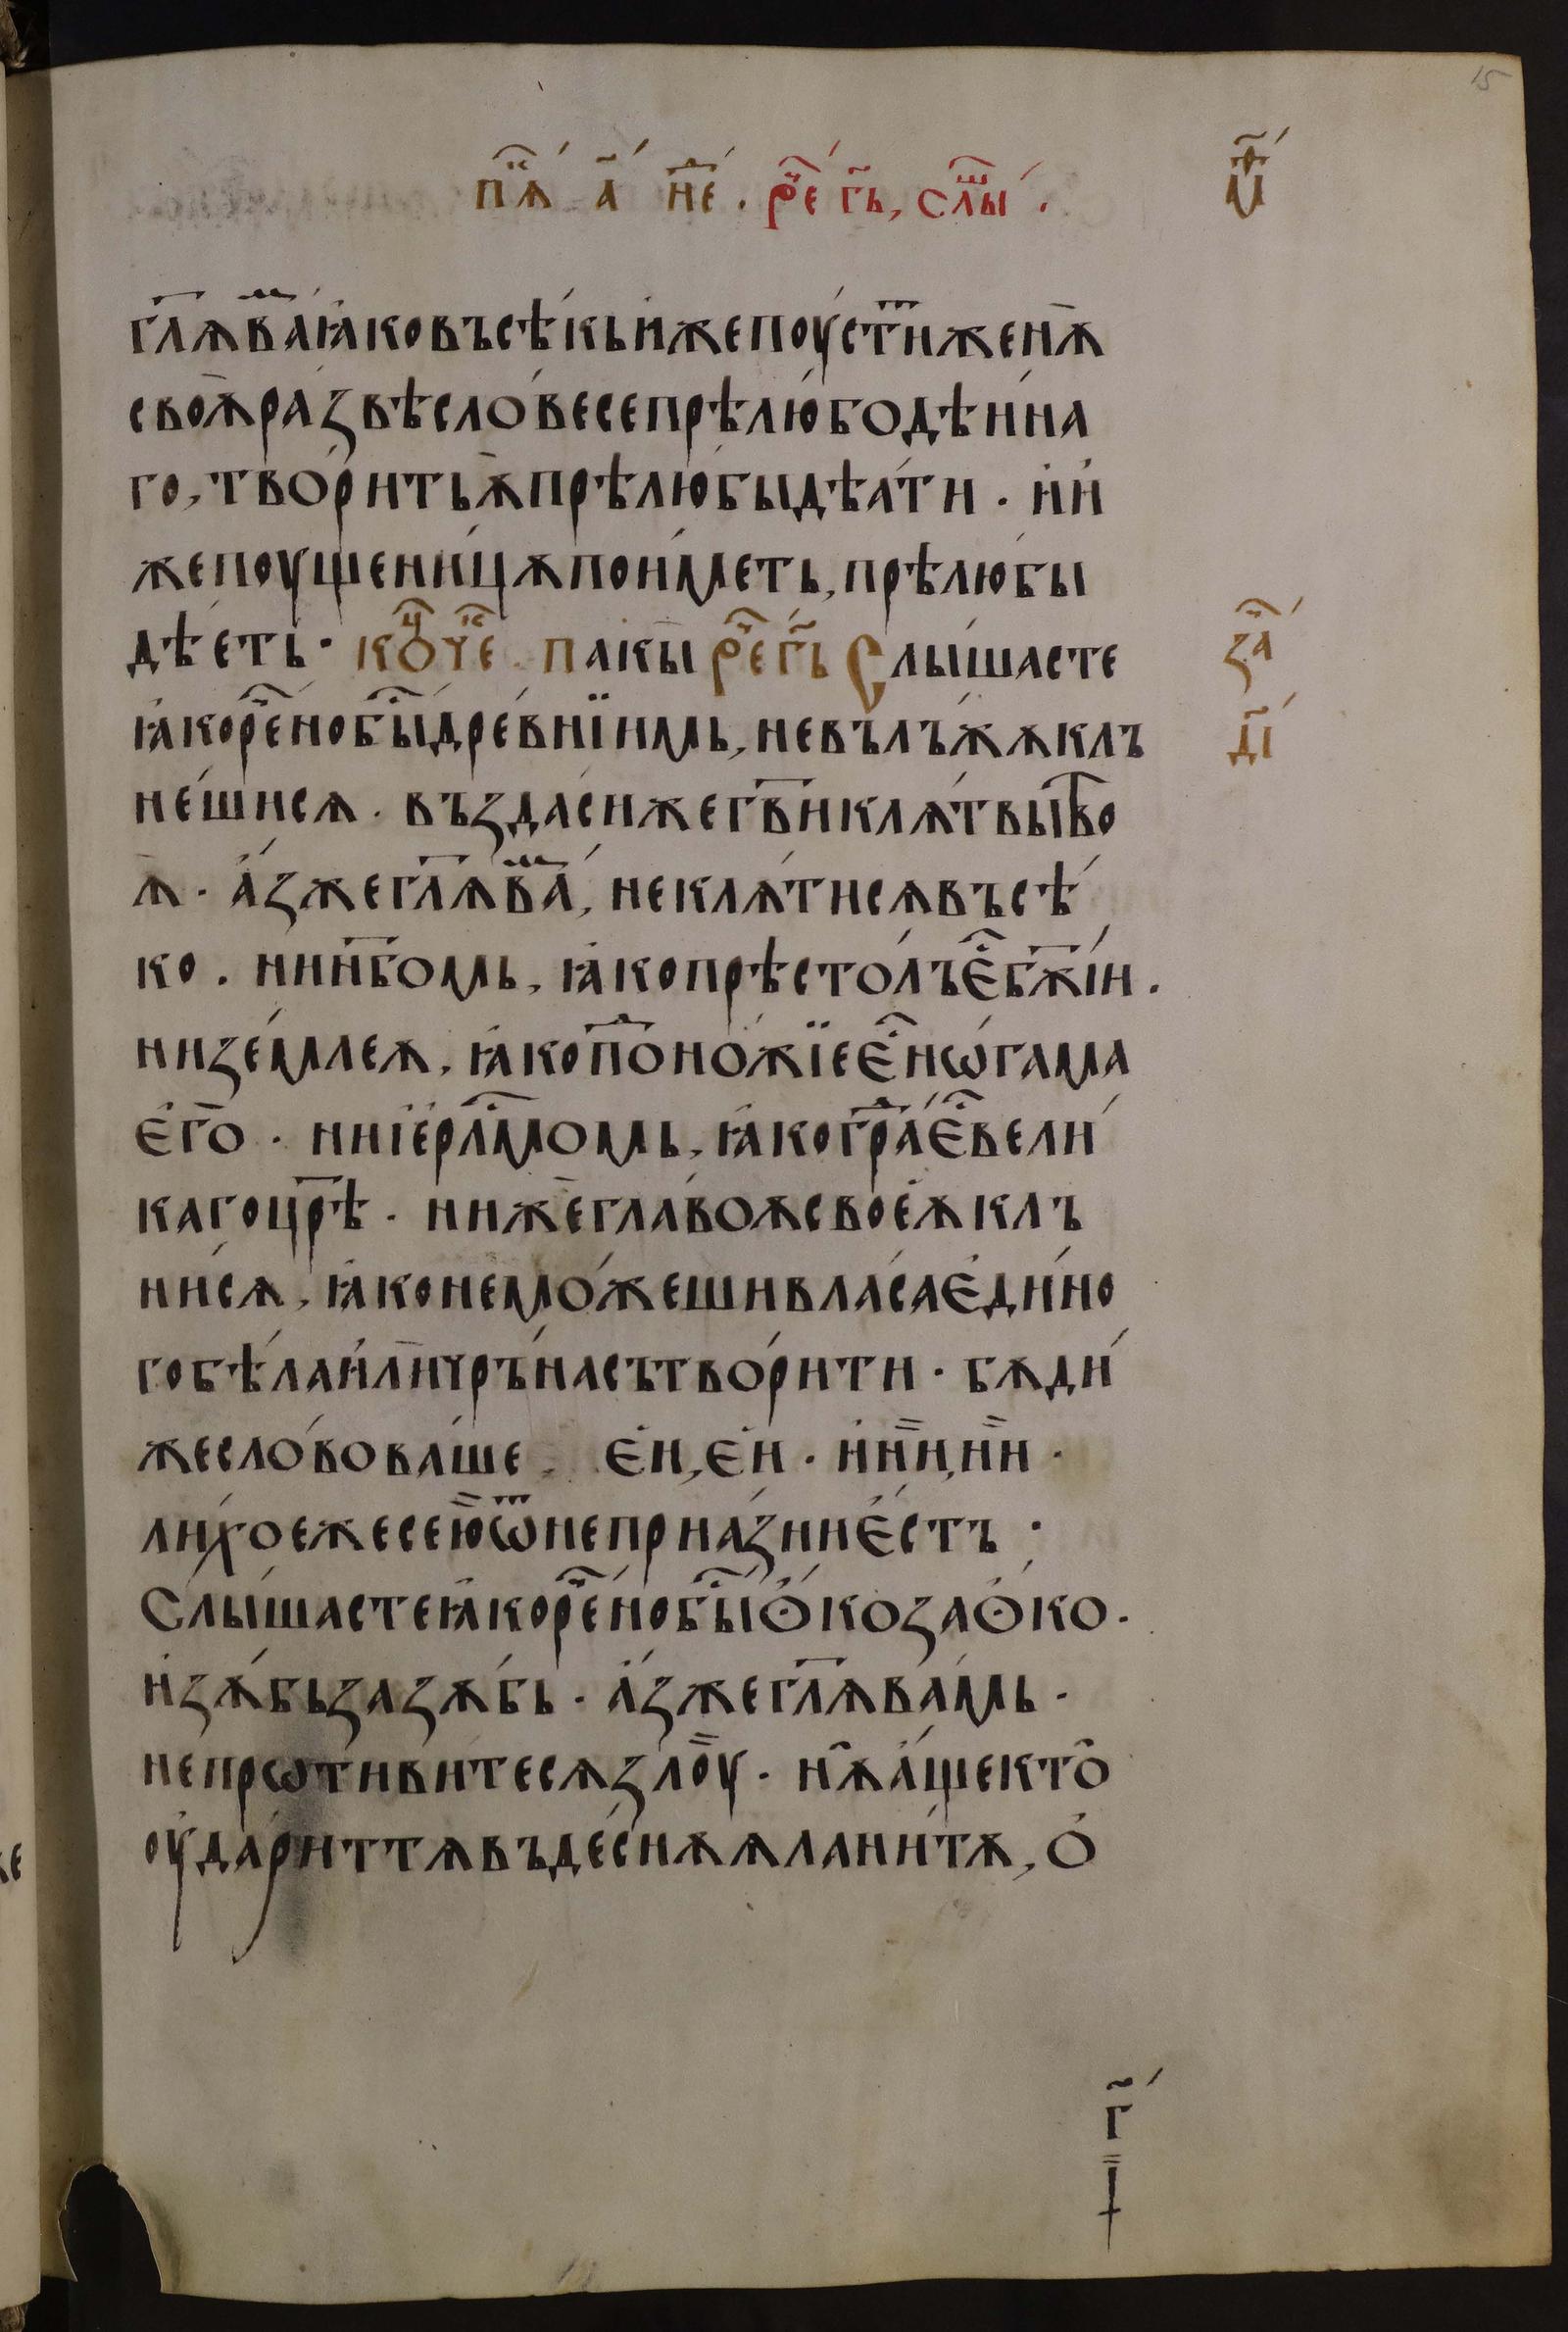 15
пⷦ҇ѧ҄ а҃ н҃еⷣ . рⷱ҇е гь҃, слыⷲ҇ .
м҃ⷮ
гл҃ѫ ваⷨ ꙗко въсѣкь иже поуститⷮ женѫ
своѫ развѣ словесе прѣлюбодѣина
го, творить ѫ прѣлюбы дѣати . и и
же поущеницѫ поиметь, прѣлюбы
дѣеть · коцⷰ҇ чеⷦ҇ . пакы рⷱ҇е гь҃ Слышасте
за҃ⷱ
ꙗко рⷱ҇ено быⷭ҇ древнїимь, не въ лъжѫ клъ
д҃і
нешисѧ . въздаси же гв҃и клѧтвы тво
ѫ . аз же гл҃ѫ ваⷨ, не клѧтисѧ въсѣ
ко . ни нб҃омь, ꙗко прѣстолъ еⷭ҇ бж҃іи .
ни землеѫ, ꙗко поⷣножїе еⷭ҇ ногама
его . ни іерⷭ҇лмомь, ꙗко граⷣ еⷭ҇ вели
каго цр҃ѣ . ниже главоѫ своеѫ клъ
нисѧ, ꙗко не можеши власа едино
го бѣла или чръна сътворити . бѫди
же слово ваше . еи, еи . и ни, ни .
лихоеже сею ѿ неприазни есть :
Слышасте ꙗко рⷱ҇ено быⷭ҇ око за око .
и зѫбь за зѫбь . аз же гл҃ѫ вамь .
не прѡтивитесѧ злоу . нѫ аще кто
оударит тѧ въ деснѫѧ ланитѫ, о
г҃